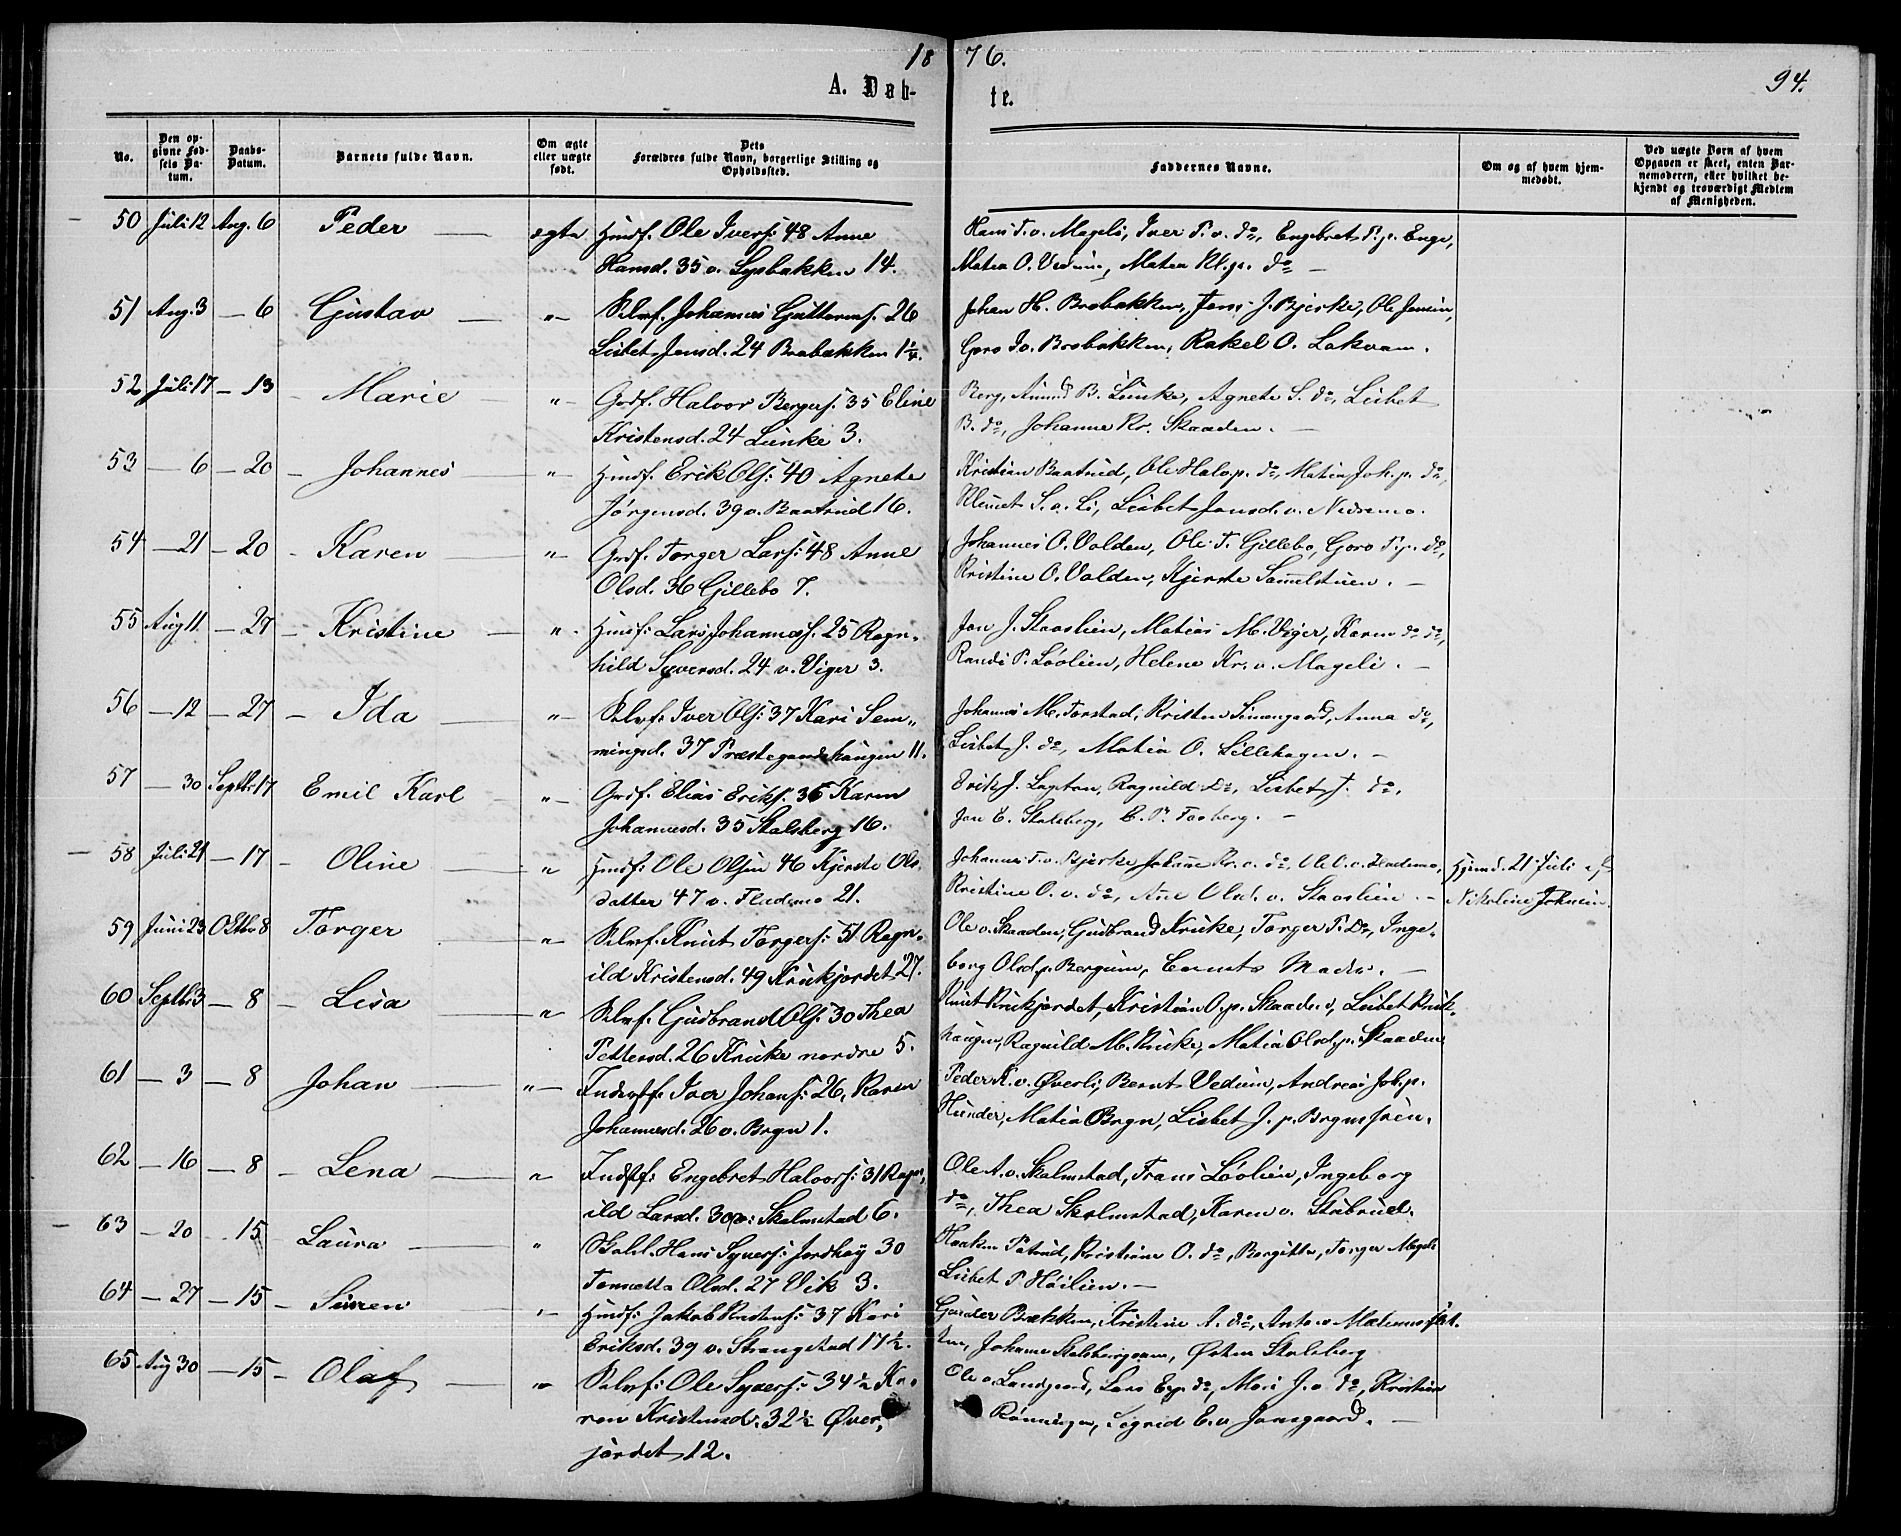 18 76.
94.
A. Døb- te.
No.
Den opgivne Fødsels Datum.
Daabs-Datum.
Barnets fulde Navn.
Om ægte eller uægte født.
Dets Forældres fulde Navn, borgerlige Stilling og Opholdssted.
Faddernes Navne.
Om og af hvem hjemmedøbt.
Ved uægte Børn af hvem Opgaven er skeet, enten Barnemoderen, eller hvilket bekjendt og troværdigt Medlem af Menigheden.
50 Juli 12 Aug. 6 Peder ægte Husf. Ole Ivers: 48 Anne
Hansd. 35 v. Lysbakken 14.
Hans T. v. Mageli, Iver P. v. do, Engebret P. p. Enge,
Matea O. Vedum, Matea Kl. p. do
51 Aug. 3 — 6 Gustav "— Selvf. Johannes Guttorms. 26
Lisbet Jensd. 24 Brobakken 1¼.
Johan H. Brobakken, Jens J. Bjerke, Ole Jensen,
Goro Jo. Brobakken, Rakel O. Lokvam.
52 Juli 17 — 13 Marie "— Grdf. Halvor Bergers. 35 Eline
Kristensd. 24 Lunke 3.
Berg, Amund B. Lunke, Agnete S. do, Lisbet
B. do, Johanne Kr. Skaaden.
53 — 6 — 20 Johannes "— Husf. Erik Ols: 40 Agnete
Jörgensd. 39 v. Baatrud 16.
Kristian Baatrud, Ole Halv. p. do, Matea Joh. p. do,
Klemet S. v. Li, Lisbet Jensd. v. Nedremo.
54 — 21 — 20 Karen "— Grdf. Torger Lars: 48 Anne
Olsd. 36 Gillebo 7.
Johannes O. Volden, Ole T. Gillebo, Goro T. p. do,
Kristine O. Volden, Kjersti Sammelstuen.
55 Aug 11 — 27 Kristine "— Husf: Lars Johanness. 25 Ragn-
hild Syversd. 24 v. Viger 3.
Jon J. Staaslien, Matias M. Viger, Karen do do,
Randi P. Löolien, Helene Kr. v. Mageli.
56 — 12 — 27 Ida "— Selvf: Iver Ols: 37 Kari Sem-
mingsd. 37 Prestegaardshaugen 11.
Johannes M. Forstad, Kristen Simengaard, Anna do,
Lisbet J. do, Matia O. Lillehagen.
57 — 30 Septbr 17 Emil Karl "— Grdf. Elias Eriks. 36 Karen
Johannesd. 35 Skalsberg 16.
Erik J. Lapton, Ragnild do, Lisbet J. do,
Jon E. Skalsberg, E. P. Faaberg.
58 Juli 21 — 17 Oline " Husf: Ole Olsen 46 Kjersti Ols-
datter 47 v. Flademo 21.
Johannes T. v. Bjerke, Johanne Kr. v. do, Ole O. v. Flademo,
Kristine O. v. do, Ane Olsd. v. Staaslien.
Hjemd. 21 Juli af
Nikoline Johnsen.
59 Juni 23 Oktbr 8 Torger " Selvf. Knut Torgers: 51 Ragn-
ild Kristensd. 49 Krukjordet 27.
Ole v. Skaaden, Gudbrand Kruke, Torger P. do, Inge-
borg Olsd. p. Bergum, barnets Moder.
60 Septbr 3 — 8 Lisa " Selvf. Gudbrand Ols: 30 Thea
Pettersd. 26 Kruke nordre 5.
Knut Krukjordet, Kristian O. p. Skaaden, Lisbet Kruk-
haugen, Ragnild M. Kruke, Matia Olsd. p. Skaaden
61 — 3 — 8 Johan "— Inderstf. Iver Johans: 26, Karen
Johannesd. 26 v. Brgn 1.
Peder K. v. Øverli, Bernt Vedum, Andreas Joh. p.
Hunder, Matia Brgn, Lisbet J. p.
62 — 16 — 8 Lena "— Indstf: Engebret Halvors: 31 Ragn-
ild Larsd. 30 p: Skalmstad 6.
Ole A. v. Skalmstad, Frans Löolien, Ingeborg
do, Thea Skalmstad, Karen v. Stubrud.
63 — 20 — 15 Laura " Hans Syvers: Jordhöy 30
Tonnetta Olsd. 27 Vik 3.
Haaken Patrud, Kristiane O. do, Borgitta, Torger Mageli
Lisbet P Höilien.
64 — 27 — 15 Simen "— Husf: Jakob 37 Kari
Eriksd. 39 v. Strangstad 17½.
Gunder Bækken, Kristine A. do, Anto v.
Johanne Skalsberg, Østen Skalsberg
65 Aug 30 — 15 Olaf " Selvf: Ole Syvers: 34½ Ka-
ren Kristensd. 32½ Øver-
jordet 12.
Ole v. Landgaard, Lars Ev. do, Mari J. v. do, Kristian
Rönningen, Sigrid E. v. Jonsgaard.